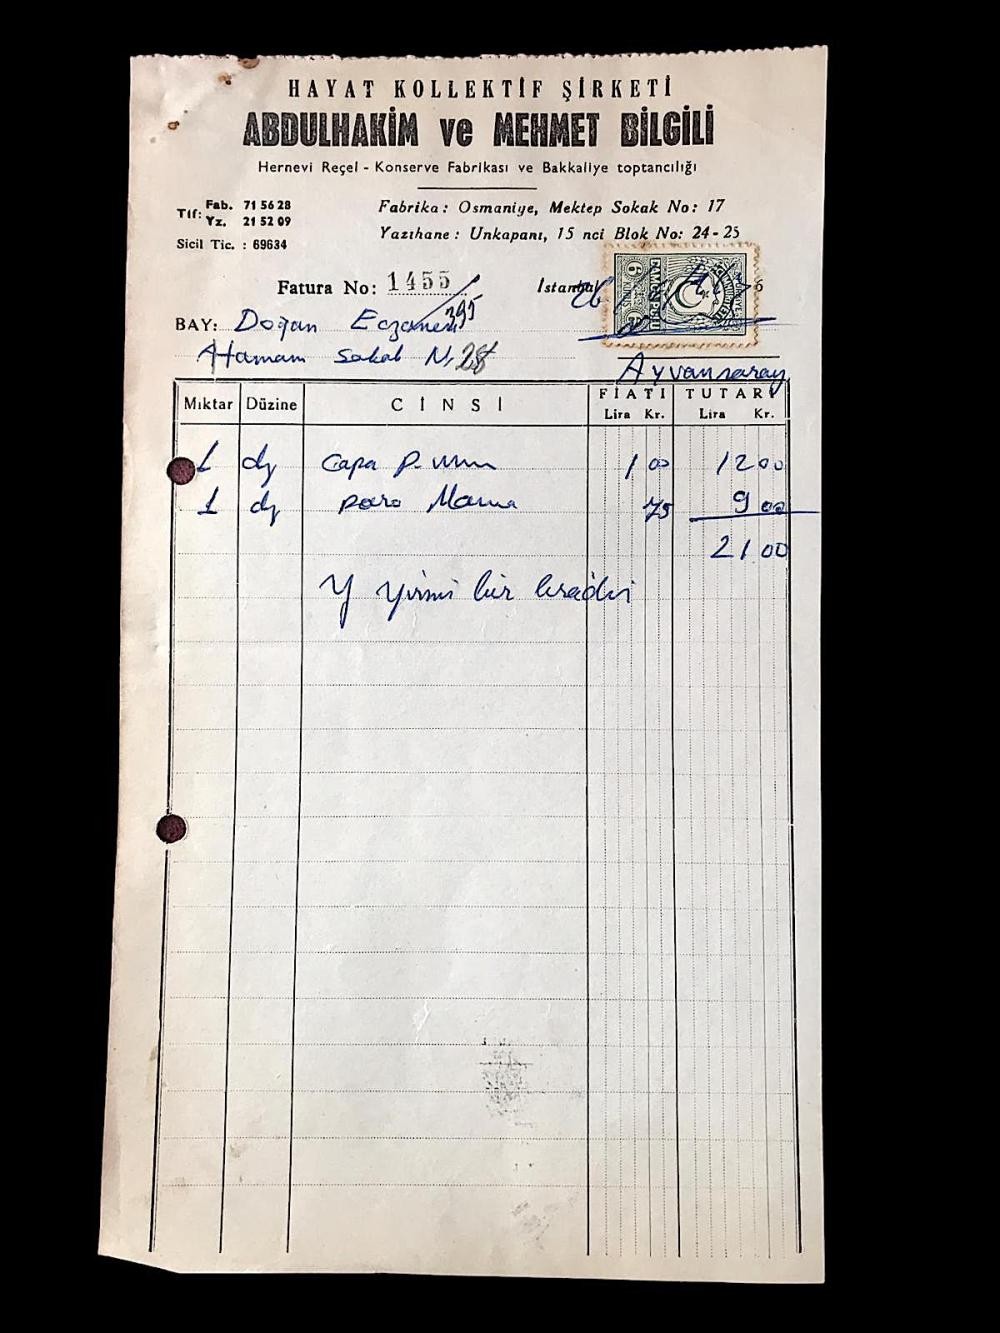 HAYAT KOLLEKTİF ŞİRKETİ
ABDULHAKİM ve MEHMET BİLGİLİ
Hernevi Reçel - Konserve Fabrikası ve Bakkaliye toptancılığı
Tlf: Fab. 71 56 28
Yz. 21 52 09
Sicil Tic. : 69634
Fabrika : Osmaniye, Mektep Sokak No: 17
Yazıhane : Unkapanı, 15 nci Blok No: 24 - 25
Fatura No: 1455 / 395
Istanbul 26
6
BAY: Doğan Eczanesi
Hamam sokak N. 28
Ayvansaray
Mıktar Düzine CİNSİ FİATI TUTARI
Lira Kr. Lira Kr.
1 dz capa P. 1 00 12 00
1 dz Mama 75 9 00
21 00
Y yirmi bir liradır